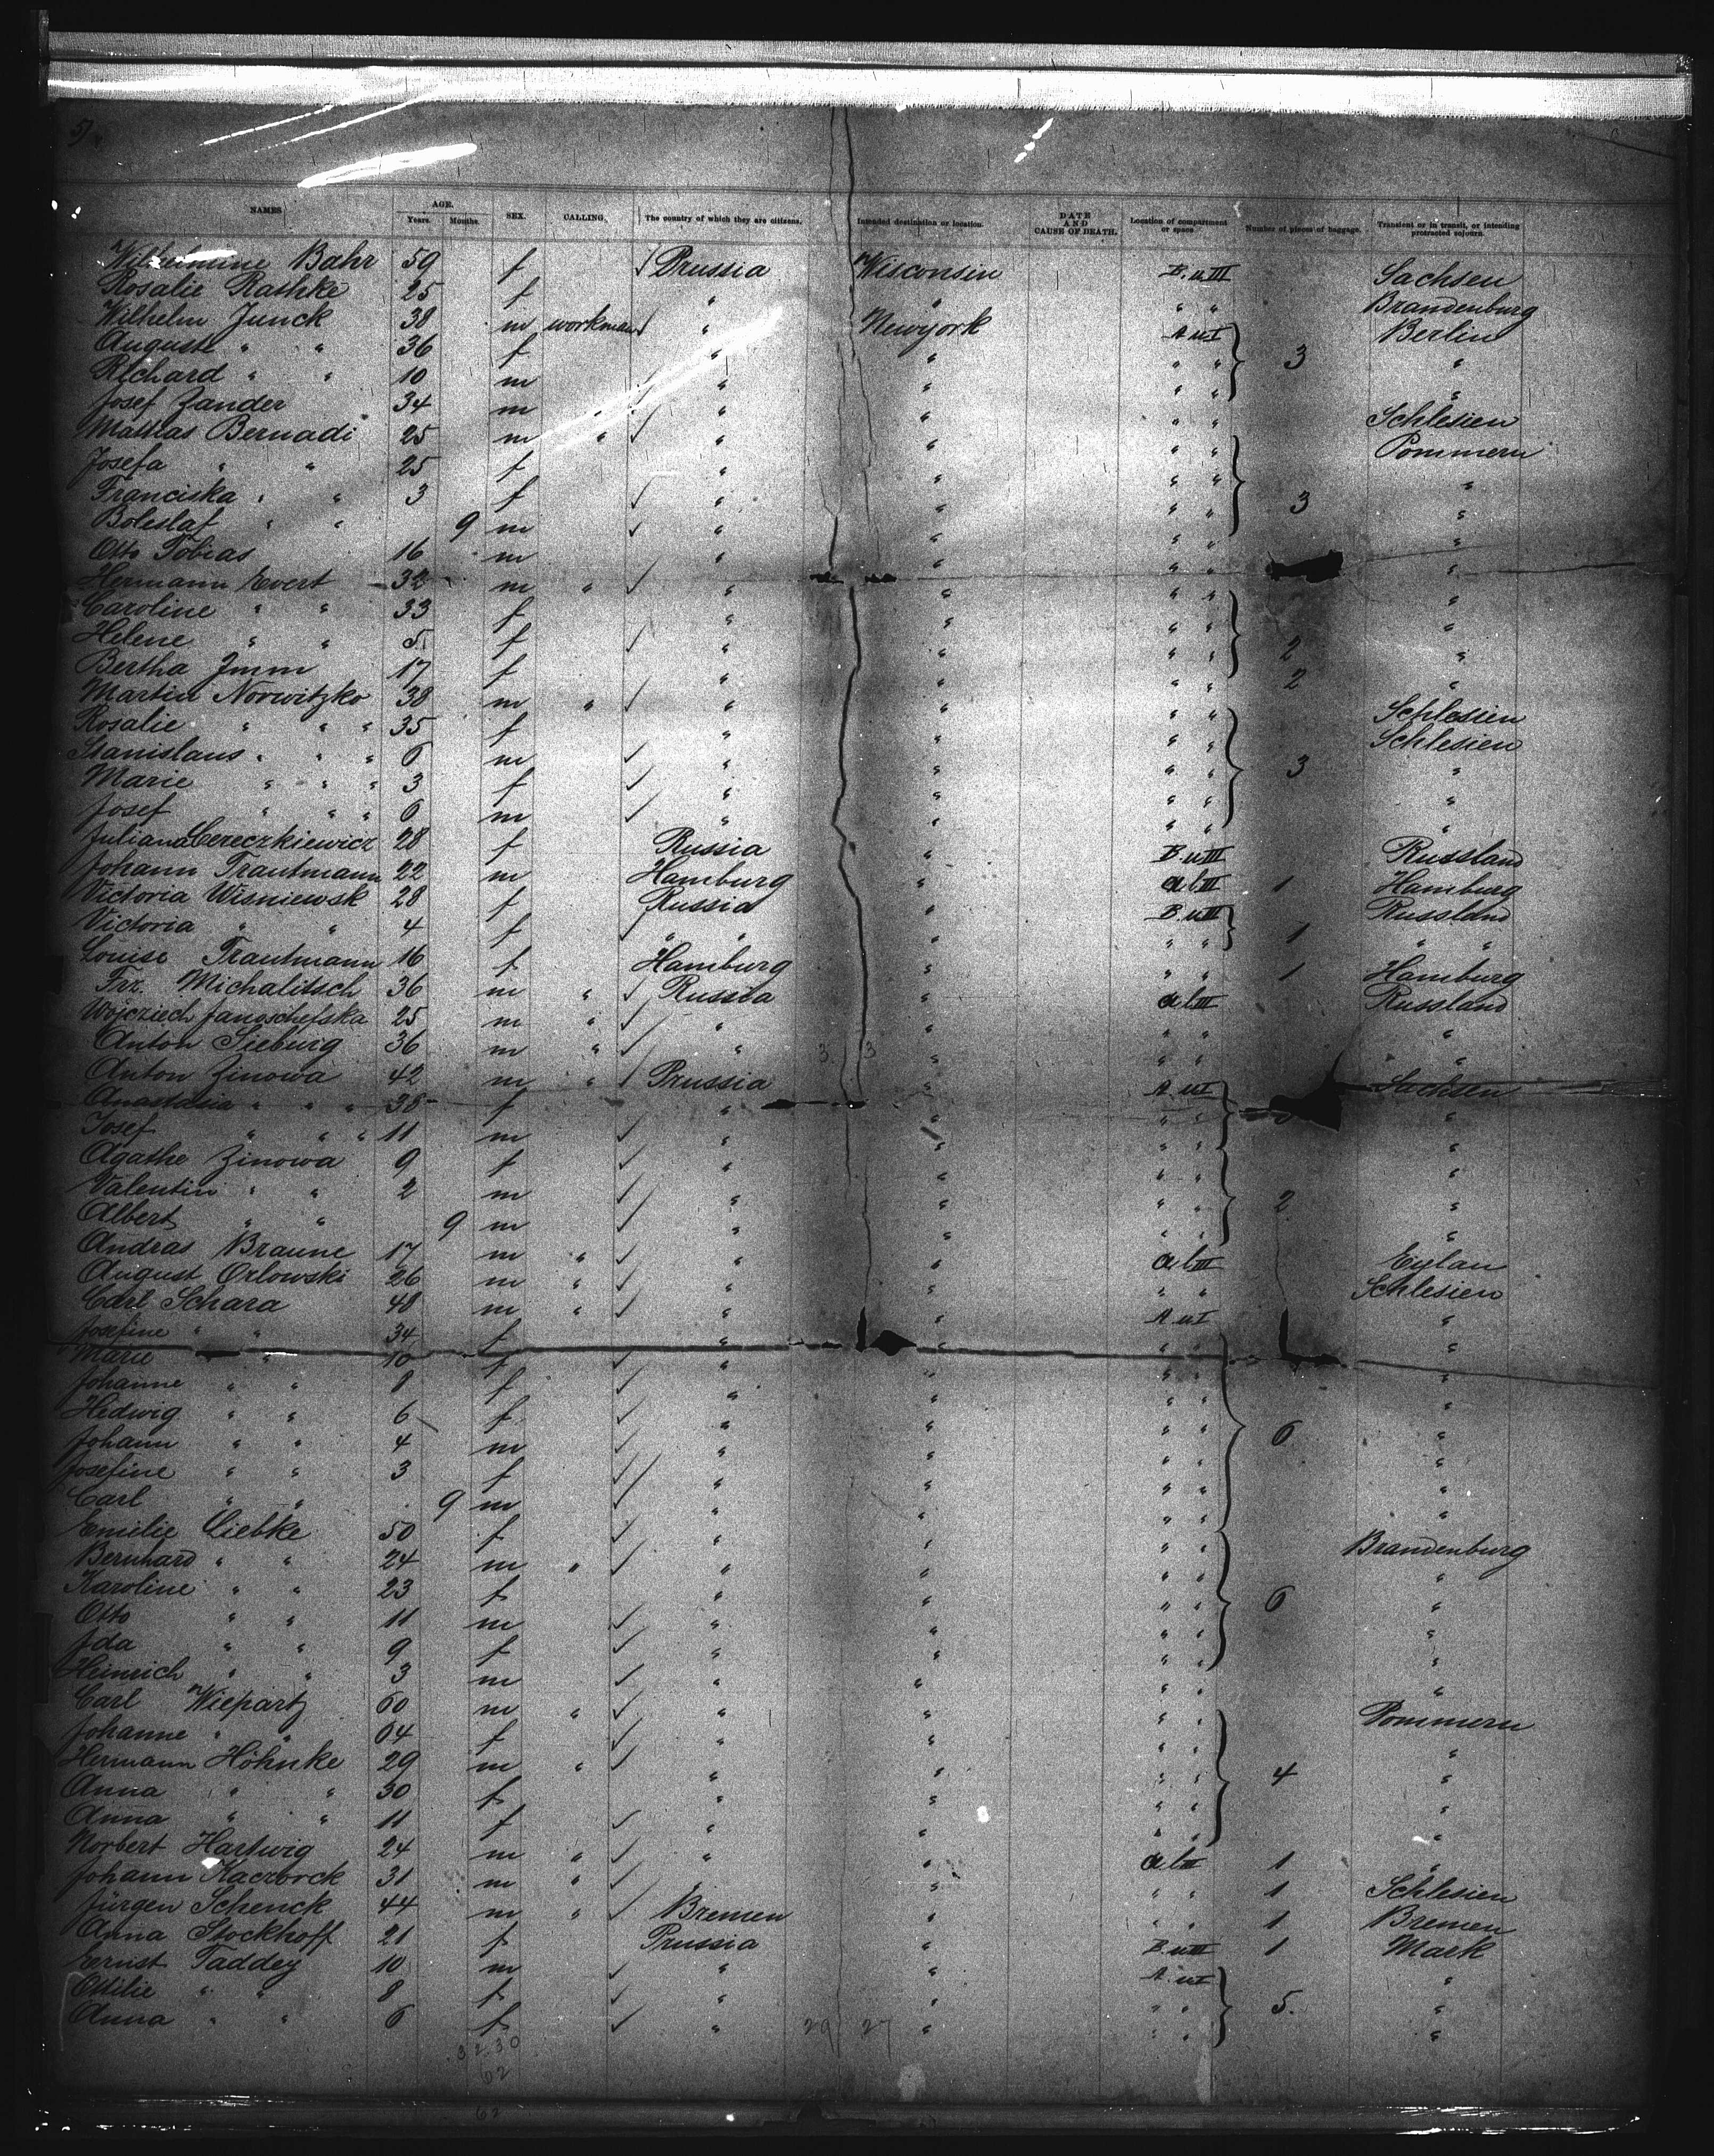 5/
NAMES AGE. Years. Months. SEX. CALLING. The country of which they are citizens. Intended destination or location. DATE AND CAUSE OF DEATH. Location of compartment or space Number of pieces of baggage. Transient or in transit, or intending protracted sojourn.
Wilhelmine Bahr 59 f Prussia Wisconsin B. u III Sachsen
Rosalie Rathke 25 f " " " " Brandenburg
Wilhelm Junck 38 m workman " Newyork A u I Berlin
Auguste " " 36 f " " " " 3 "
Richard " " 10 m " " " " "
Josef Zander 34 m " " " " " Schlesien
Mathias Bernadi 25 m " " " " " Pommern
Josefa " " 25 f " " " " "
Franciska " " 3 f " " " " 3 "
Boleslaf " " 9 m " " " " "
Otto Tobias 16 m " " " " "
Hermann Evert 32 m " " " " " "
Caroline " " 33 f " " " " "
Helene " " 5 f " " " " 2 "
Bertha Imm 17 f " " " " 2 "
Martin Norwitzko 38 m " " " " " Schlesien
Rosalie " " " 35 f " " " " Schlesien
Stanislaus " " " 6 m " " " " 3 "
Marie " " " 3 f " " " " "
Josef " " " 6 m " " " " "
Juliana Cereczkiewicz 28 f Russia " B. u III Russland
Johann Trautmann 22 m Hamburg " a b III 1 Hamburg
Victoria Wisniewsk 28 f Russia " B. u III Russland
Victoria " " 4 f " " " " " 1 " "
Louise Trautmann 16 f Hamburg " " " 1 Hamburg
Frz. Michalitsch 36 m " Russia " a b III Russland
Wojcziech Janoschefska 25 m " " " " " "
Anton Sieburg 36 m " " 3 3 " " " "
Anton Zinowa 42 m " Prussia " A u I Sachsen
Anastasia " " " 38 f " " " " "
Josef " " " 11 m " " " " "
Agathe Zinowa 9 f " " " " "
Valentin " " 2 m " " " " 2 "
Albert " " 9 m " " " " "
Andras Braune 17 m " " " a b III Eylau
August Orlowski 26 m " " " " " Schlesien
Carl Schara 48 m " " " A u I "
Josefine " " 34 f " " " " "
Marie " " 10 f " " " " "
Johanne " " 8 f " " " " "
Hedwig " " 6 f " " " " 6 "
Johann " " 4 m " " " " "
Josefine " " 3 f " " " " "
Carl " " 9 m " " " " "
Emilie Liebke 50 f " " " " Brandenburg
Bernhard " " 24 m " " " " " "
Karoline " " 23 f " " " " 6 "
Otto " " 11 m " " " " "
Ida " " 9 f " " " " "
Heinrich " " 3 m " " " " "
Carl Wiepartz 60 m " " " " " Pommern
Johanne " " 64 f " " " " "
Hermann Höhnke 29 m " " " " " 4 "
Anna " " 30 f " " " " "
Anna " " 11 f " " " " "
Norbert Hartwig 24 m " " " a b III 1 "
Johann Kaczorck 31 m " " " " 1 Schlesien
Jürgen Schenck 44 m " Bremen " " " 1 Bremen
Anna Stockhoff 21 f Prussia " B u III 1 Mark
Ernst Taddey 10 m " " A u I "
Ottilie " " 8 f " " " " 5. "
Anna " " 6 f " 29 27 " " " "
32 30
62
62